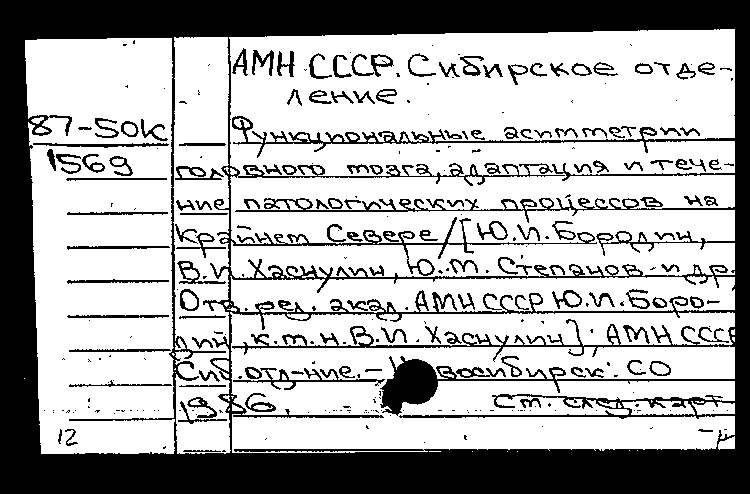 АМН СССР. Сибирское отде-
ление.
87-50к Функциональные асимметрии
1569 головного мозга, адаптация и тече-
ние патологических процессов на
Крайнем Севере / [Ю.И. Бородин,
В.И. Хаснулин, Ю.М. Степанов и др.
Отв. ред. акад. АМН СССР Ю.И. Боро-
дин, к.м.н. В.И. Хаснулин]; АМН СССР
Сиб. отд-ние. - Новосибирск: СО
1986. См. след. карт.
12